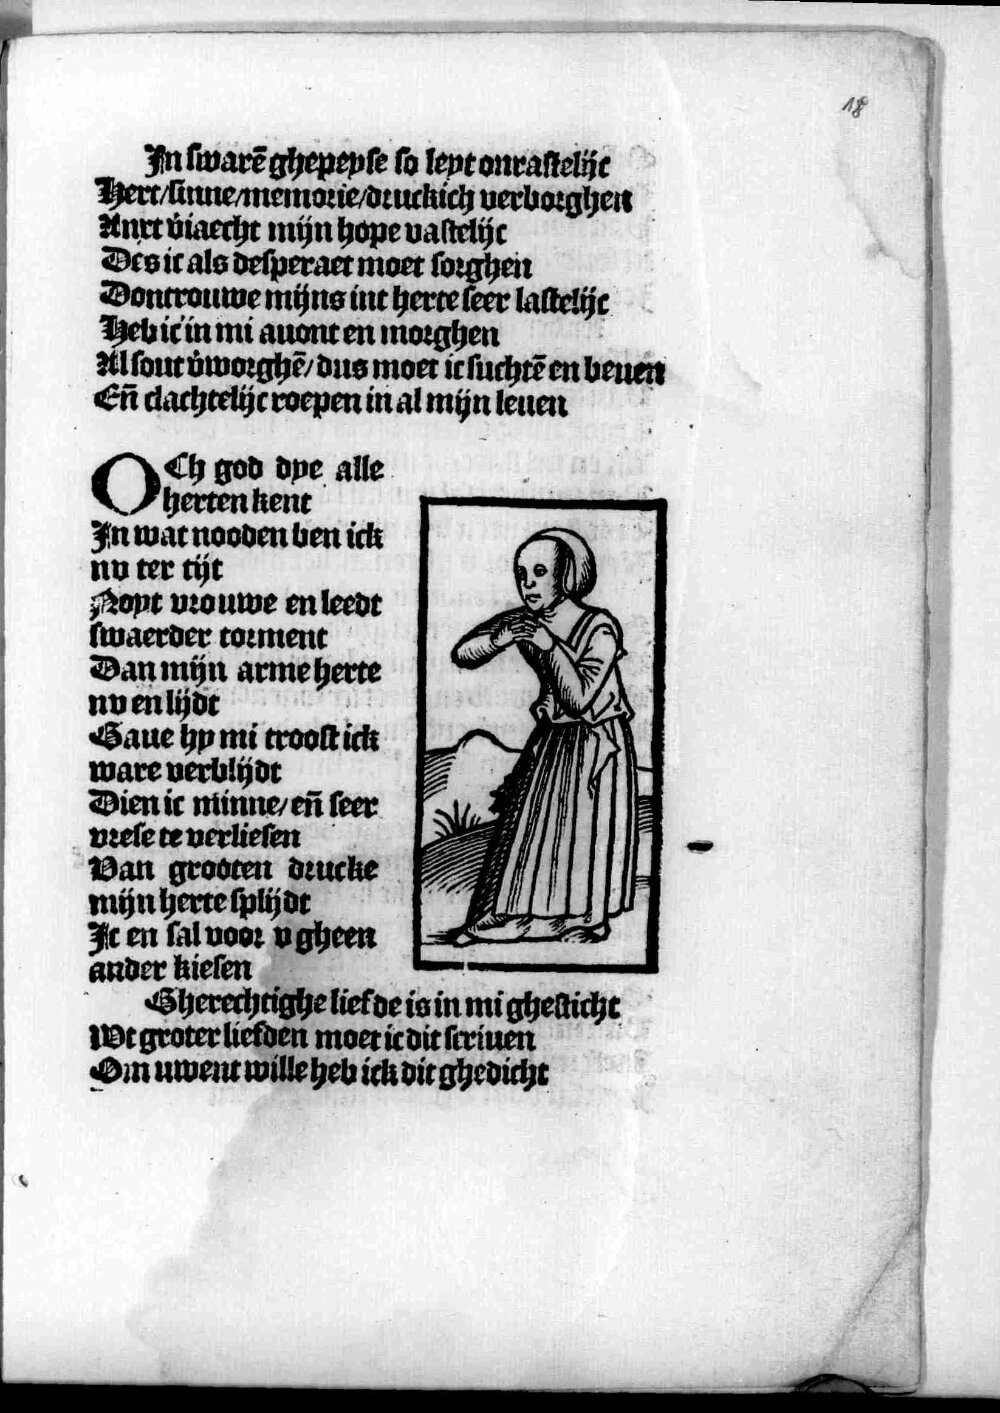 18
In swarē ghepeyse so leyt onrastelijc
Hert/sinne/memorie/druckich verborghen
Anxt v̄iaecht mijn hope vastelijc
Des ic als desperaet moet sorghen
Dontrouwe mijns int herte seer lastelijc
Heb ic in mi auont en morghen
Al sout v̄worghē/dus moet ic suchtē en beuen
Eñ clachtelijc roepen in al mijn leuen
OCh god dye alle
herten kent
In wat nooden ben ick
nv ter tijt
Noyt vrouwe en leedt
swaerder torment
Dan mijn arme herte
nv en lijdt
Gaue hy mi troost ick
ware verblijdt
Dien ic minne/eñ seer
vrese te verliesen
Van grooten drucke
mijn herte splijdt
Ic en sal voor v gheen
ander kiesen
Gherechtighe liefde is in mi ghesticht
Wt groter liefden moet ic dit scriuen
Om uwent wille heb ick dit ghedicht